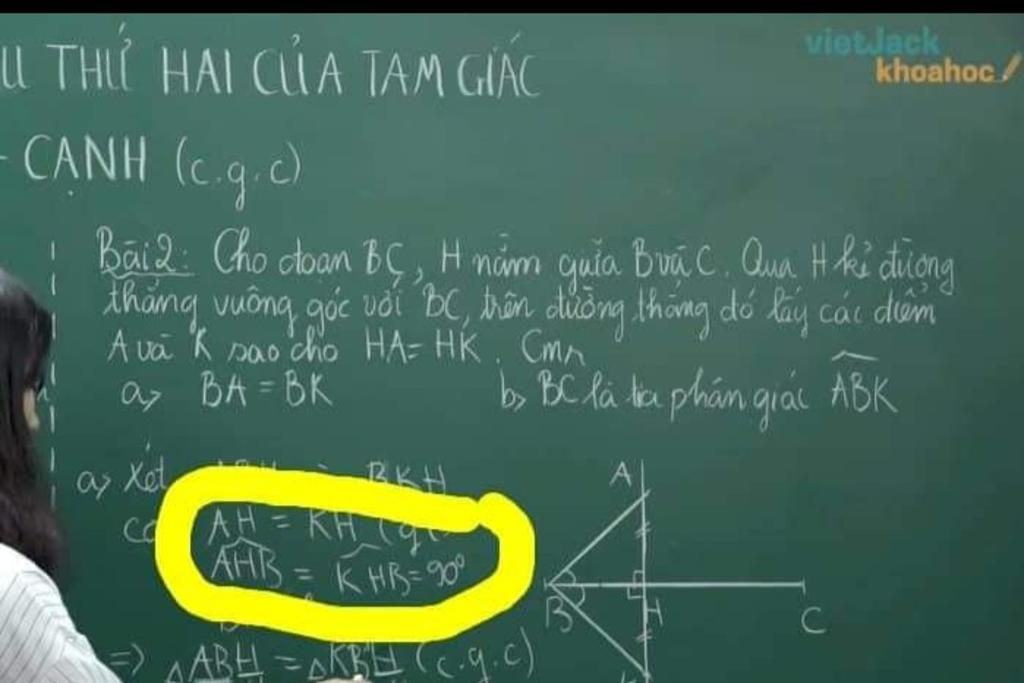 vietJack
khoahoc
U THỨ HAI CỦA TAM GIÁC
- CẠNH (c.g.c)
Bài 2: Cho đoạn BC, H nằm giữa B và C. Qua H kẻ đường
thẳng vuông góc với BC, trên đường thẳng đó lấy các điểm
A và K sao cho HA = HK. Cmr
a, BA = BK b, BC là tia phân giác ABK
a, Xét BKH
AH = KH
AHB = KHB = 90°
=> △ABH = △KBH (c.g.c)
A
B H C